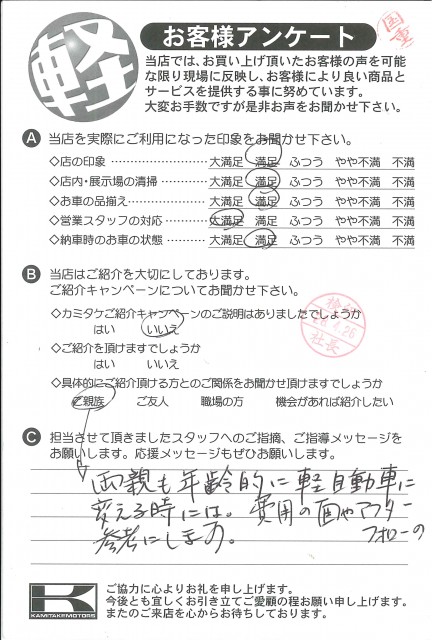 国重
軽
お客様アンケート
当店では、お買い上げ頂いたお客様の声を可能
な限り現場に反映し、お客様により良い商品と
サービスを提供する事に努めています。
大変お手数ですが是非お声をお聞かせ下さい。
A 当店を実際にご利用になった印象をお聞かせ下さい。
◇店の印象 ………………… 大満足 満足 ふつう やや不満 不満
◇店内・展示場の清掃 ………… 大満足 満足 ふつう やや不満 不満
◇お車の品揃え ……………… 大満足 満足 ふつう やや不満 不満
◇営業スタッフの対応 ………… 大満足 満足 ふつう やや不満 不満
◇納車時のお車の状態 ………… 大満足 満足 ふつう やや不満 不満
B 当店はご紹介を大切にしております。
ご紹介キャンペーンについてお聞かせ下さい。
◇カミタケご紹介キャンペーンのご説明はありましたでしょうか
はい いいえ
◇ご紹介を頂けますでしょうか
はい いいえ
◇具体的にご紹介頂ける方とのご関係をお聞かせ頂けますでしょうか
ご親族 ご友人 職場の方 機会があれば紹介したい
社長
C 担当させて頂きましたスタッフへのご指摘、ご指導メッセージを
お願いします。応援メッセージもぜひお願いします。
両親も年齢的に軽自動車に
変える時には。費用の面やアフター
フォローの
参考にします。
K
KAMITAKEMOTORS
ご協力に心よりお礼を申し上げます。
今後とも宜しくお引き立てご愛顧の程お願い申し上げます。
またのご来店を心からお待ちしております。